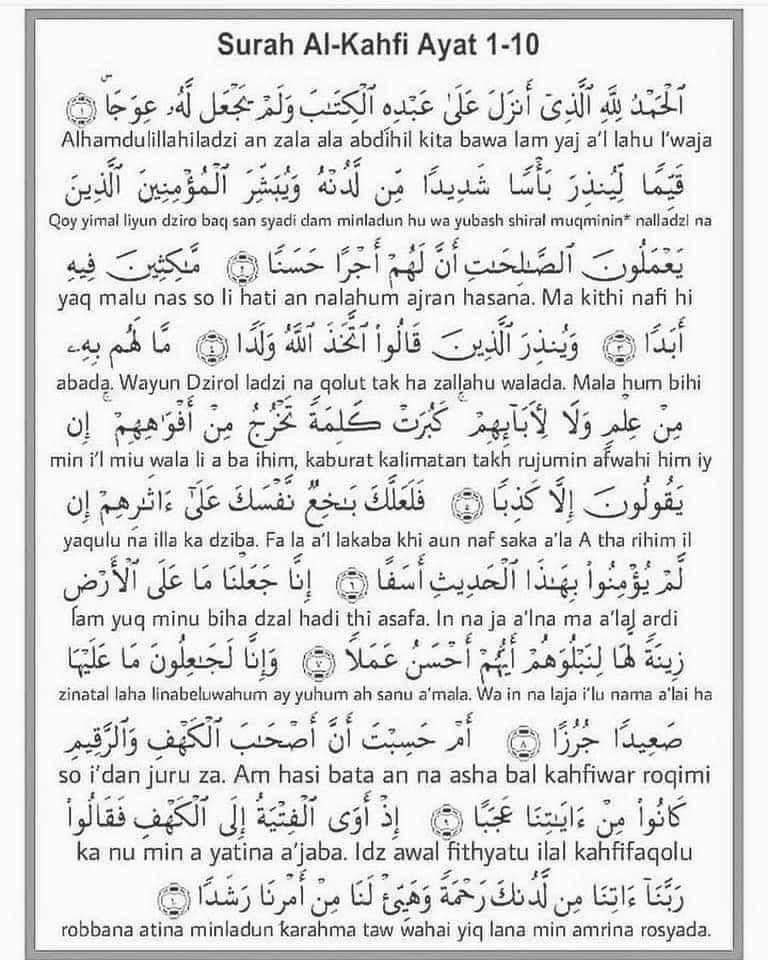 Surah Al-Kahfi Ayat 1-10
ٱلْحَمْدُ لِلَّهِ ٱلَّذِىٓ أَنزَلَ عَلَىٰ عَبْدِهِ ٱلْكِتَٰبَ وَلَمْ يَجْعَل لَّهُۥ عِوَجَاۜ ١
Alhamdulillahiladzi an zala ala abdihil kita bawa lam yaj a'l lahu I'waja
قَيِّمًا لِّيُنذِرَ بَأْسًا شَدِيدًا مِّن لَّدُنْهُ وَيُبَشِّرَ ٱلْمُؤْمِنِينَ ٱلَّذِينَ
Qoy yimal liyun dziro baq san syadi dam minladun hu wa yubash shiral muqminin* nalladzi na
يَعْمَلُونَ ٱلصَّٰلِحَٰتِ أَنَّ لَهُمْ أَجْرًا حَسَنًا ٢ مَّٰكِثِينَ فِيهِ
yaq malu nas so li hati an nalahum ajran hasana. Ma kithi nafi hi
أَبَدًا ٣ وَيُنذِرَ ٱلَّذِينَ قَالُوا۟ ٱتَّخَذَ ٱللَّهُ وَلَدًا ٤ مَّا لَهُم بِهِۦ
abada. Wayun Dzirol ladzi na qolut tak ha zallahu walada. Mala hum bihi
مِنْ عِلْمٍ وَلَا لِأَبَآئِهِمْ ۚ كَبُرَتْ كَلِمَةً تَخْرُجُ مِنْ أَفْوَٰهِهِمْ ۚ إِن
min i'l miu wala li a ba ihim, kaburat kalimatan takh rujumin afwahi him iy
يَقُولُونَ إِلَّا كَذِبًا ٥ فَلَعَلَّكَ بَٰخِعٌ نَّفْسَكَ عَلَىٰٓ ءَاثَٰرِهِمْ إِن
yaqulu na illa ka dziba. Fa la a'l lakaba khi aun naf saka a'la A tha rihim il
لَّمْ يُؤْمِنُوا۟ بِهَٰذَا ٱلْحَدِيثِ أَسَفًا ٦ إِنَّا جَعَلْنَا مَا عَلَى ٱلْأَرْضِ
lam yuq minu biha dzal hadi thi asafa. In na ja a'lna ma a'lal ardi
زِينَةً لَّهَا لِنَبْلُوَهُمْ أَيُّهُمْ أَحْسَنُ عَمَلًا ٧ وَإِنَّا لَجَٰعِلُونَ مَا عَلَيْهَا
zinatal laha linabeluwahum ay yuhum ah sanu a'mala. Wa in na laja i'lu nama a'lai ha
صَعِيدًا جُرُزًا ٨ أَمْ حَسِبْتَ أَنَّ أَصْحَٰبَ ٱلْكَهْفِ وَٱلرَّقِيمِ
so i'dan juru za. Am hasi bata an na asha bal kahfiwar roqimi
كَانُوا۟ مِنْ ءَايَٰتِنَا عَجَبًا ٩ إِذْ أَوَى ٱلْفِتْيَةُ إِلَى ٱلْكَهْفِ فَقَالُوا۟
ka nu min a yatina a'jaba. Idz awal fithyatu ilal kahfifaqolu
رَبَّنَآ ءَاتِنَا مِن لَّدُنكَ رَحْمَةً وَهَيِّئْ لَنَا مِنْ أَمْرِنَا رَشَدًا ١٠
robbana atina minladun karahma taw wahai yiq lana min amrina rosyada.